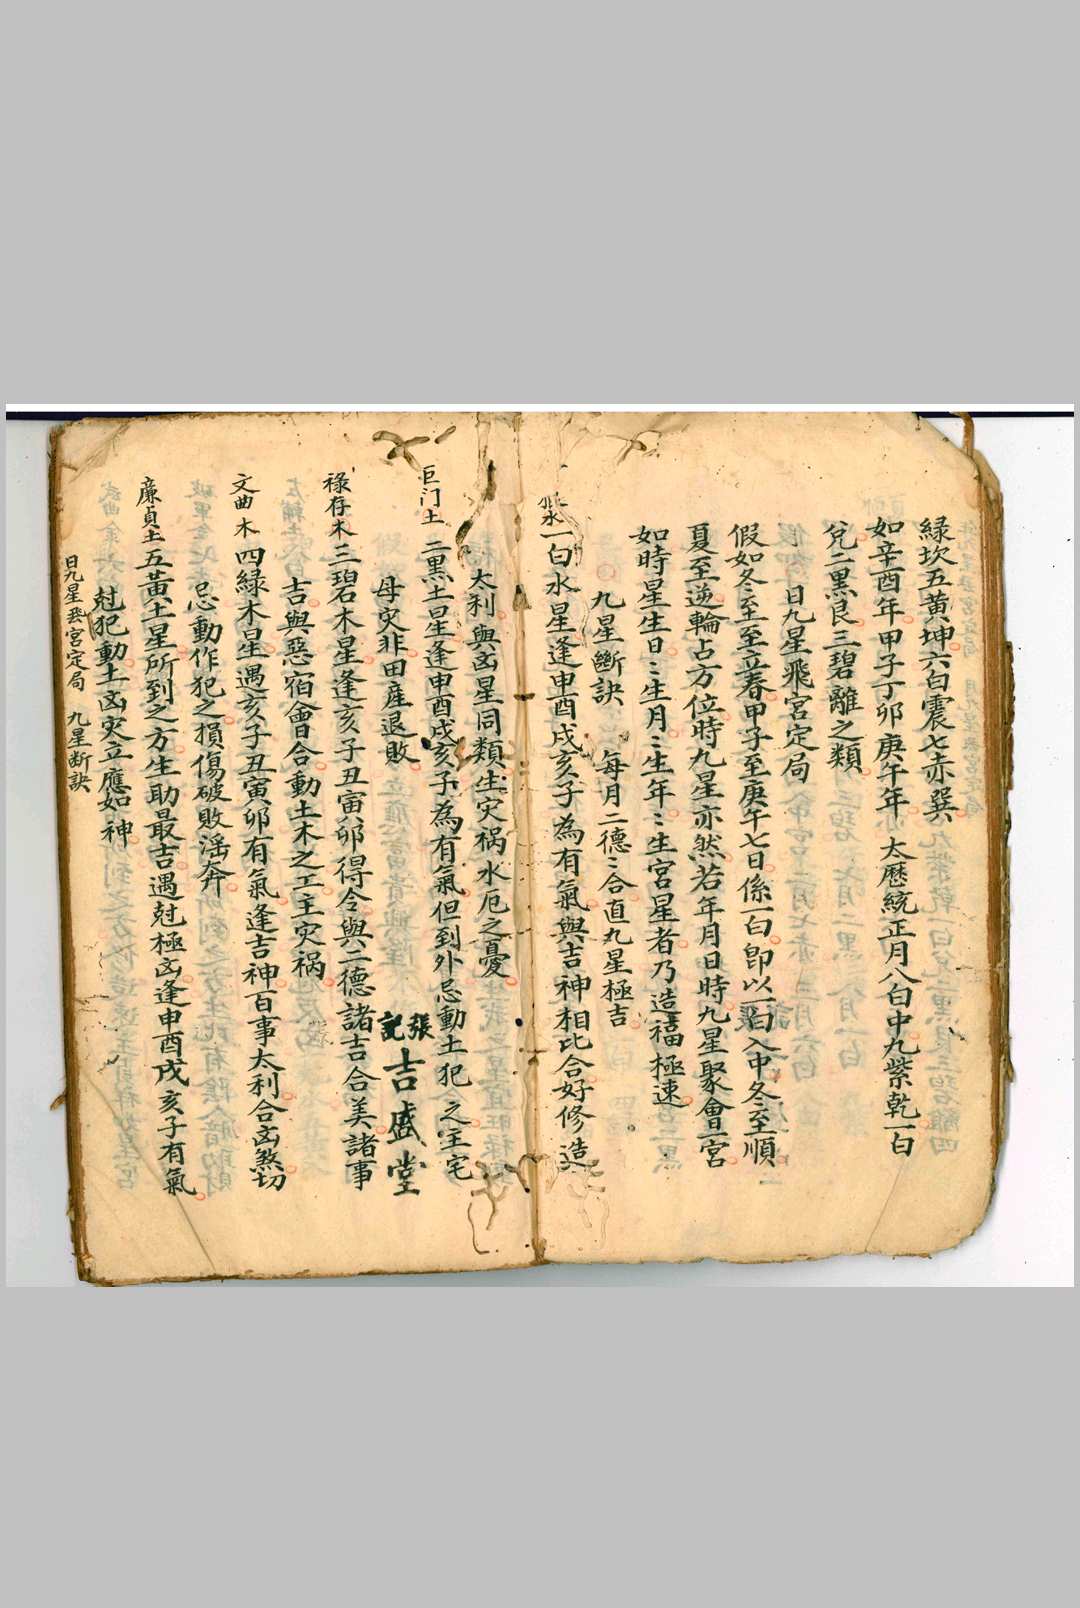 緑坎五黃坤六白震七赤巽
如辛酉年甲子丁卯庚午年 太歷統正月八白中九紫乾一白
兌二黑艮三碧離之類
日九星飛宮定局
假如冬至至立春甲子至庚午七日係一白即以一白入中冬至順
夏至逆輪占方位時九星亦然若年月日時九星聚會一宮
如時星生日〻生月〻生年〻生宮星者乃造福極速
九星斷訣 每月二德〻合直九星極吉
一白水星逢申酉戌亥子為有氣與吉神相比合好修造
太利與凶星同類生灾祸水厄之憂
巨门土 二黑土星逢申酉戌亥子為有氣但到外忌動土犯之主宅
母灾非田産退敗
張記
吉盛堂
祿存木 三碧木星逢亥子丑寅卯得令與二德諸吉合美諸事
吉與惡宿會合動土木之工主灾祸
文曲木 四緑木星遇亥子丑寅卯有氣逢吉神百事太利合凶煞切
忌動作犯之損傷破敗滛奔
廉貞土 五黃土星所到之方生助最吉遇尅極凶逢申酉戌亥子有氣
尅犯動土凶灾立應如神
日九星飛宮定局 九星断訣